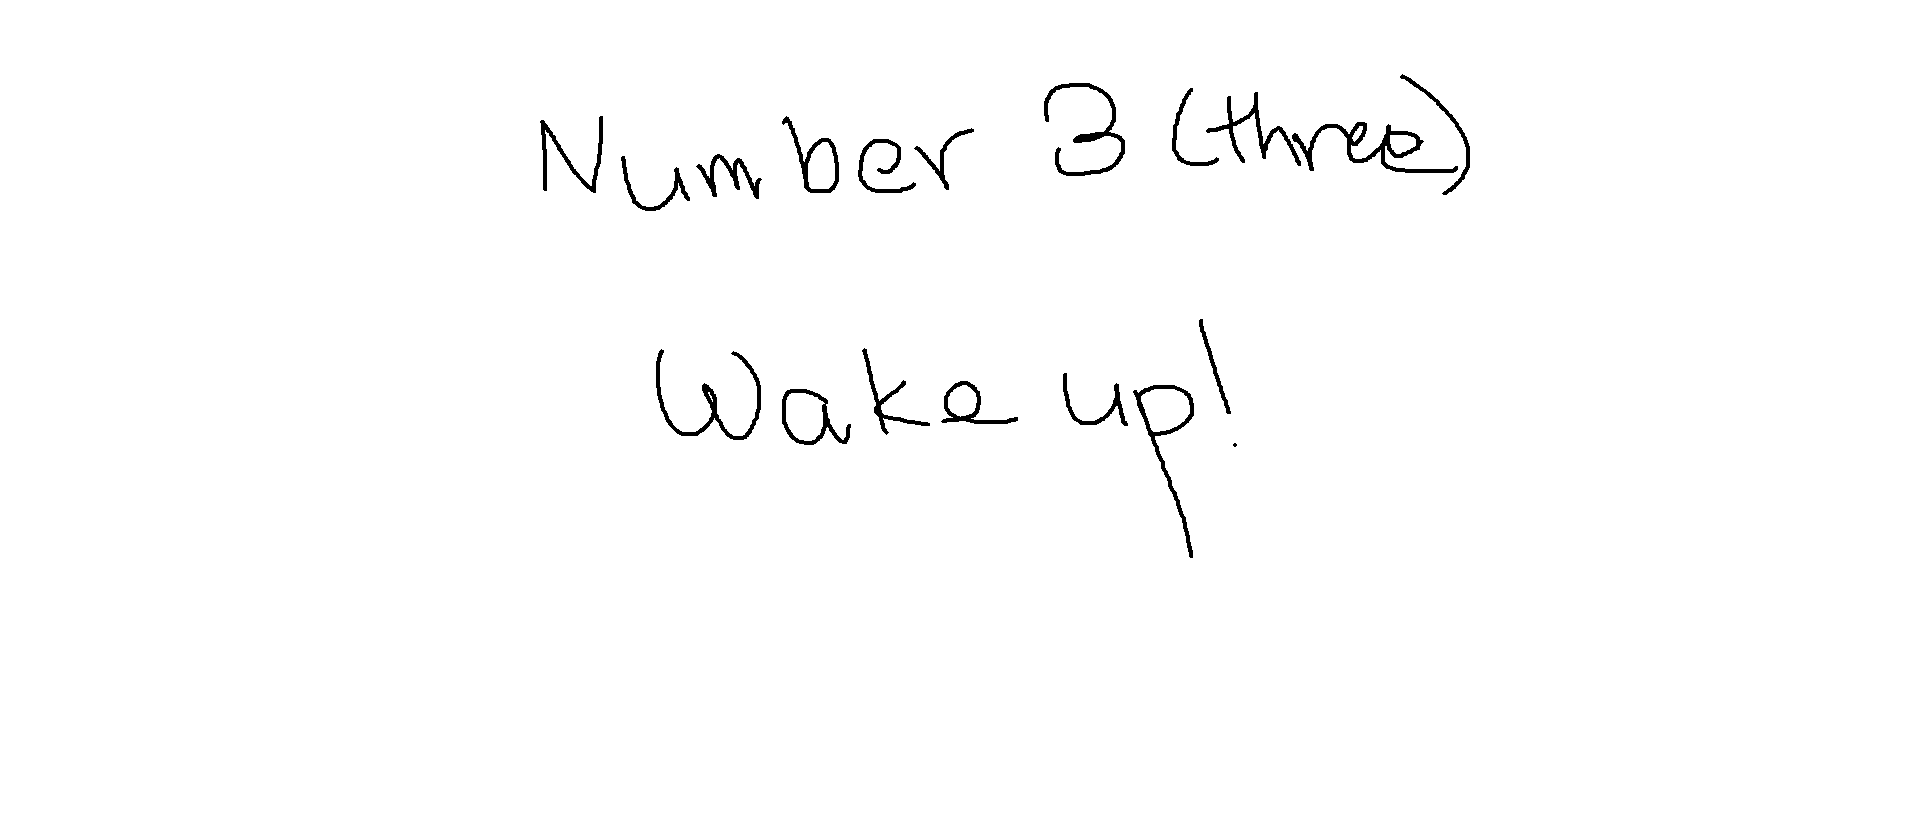 Number 3 (three)
Wake up!